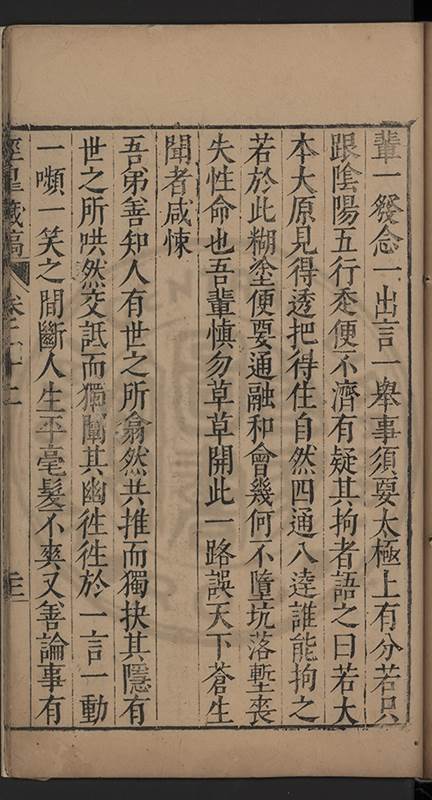 輩一發念一出言一舉事須要太極上有分若只
跟陰陽五行走便不濟有疑其拘者語之曰若大
本大原見得透把得住自然四通八達誰能拘之
若於此糊塗便要通融和會幾何不墮坑落塹喪
失性命也吾輩慎勿草草開此一路誤天下蒼生
聞者咸悚
吾弟善知人有世之所翕然共推而獨抉其隱有
世之所哄然交詆而獨闡其幽徃徃於一言一動
一嚬一笑之間斷人生平毫髮不爽又善論事有
涇臯藏稿 卷二十二